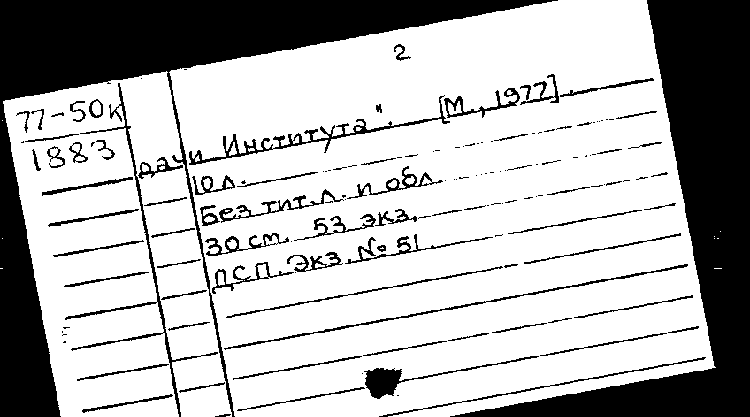 2
77-50к
1883
дачи Института". [М., 1977].
10 л.
Без тит. л. и обл.
30 см. 53 экз.
ДСП. Экз. № 51.